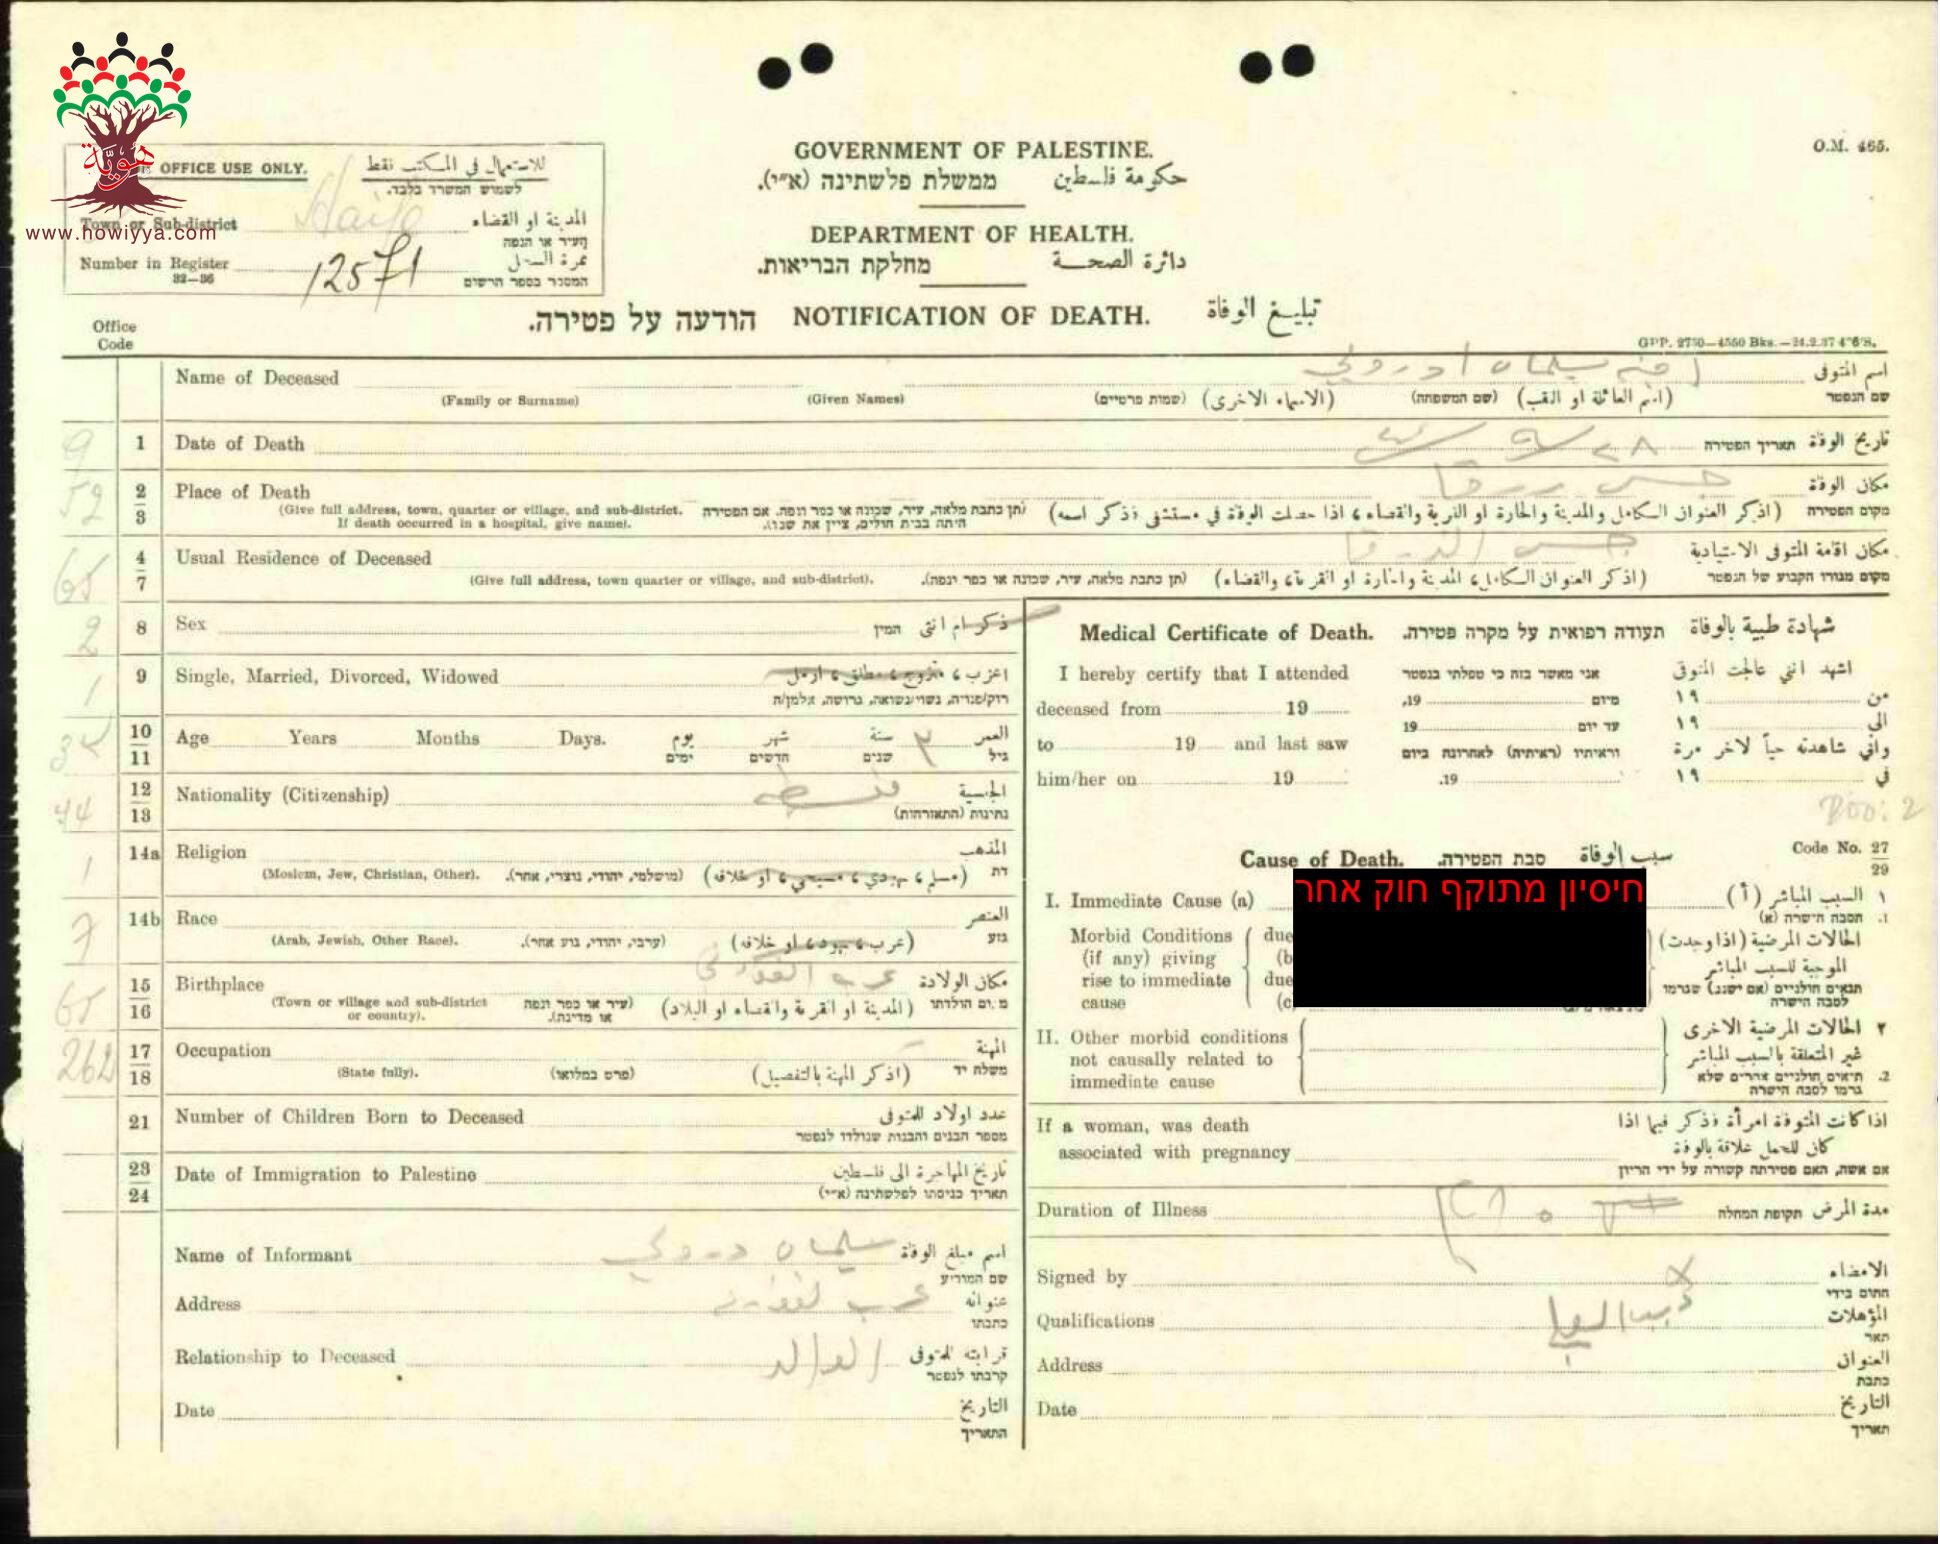 هويّة
www.howiyya.com
GOVERNMENT OF PALESTINE.
ממשלת פלשתינה (א״י). حكومة فلسطين
O.M. 465.
OFFICE USE ONLY. للاستعمال في المكتب فقط
לשמוש המשרד בלבד.
Town or Sub-district Haifa المدينة او القضاء
העיר או הנפה
Number in Register 12571 نمرة السجل
32—36 המספר בספר הרשום
DEPARTMENT OF HEALTH.
מחלקת הבריאות. دائرة الصحة
הודעה על פטירה. NOTIFICATION OF DEATH. تبليغ الوفاة
Office
Code
GPP. 2750—4550 Bks.—24.2.37 4"6'S.
Name of Deceased اسم المتوفى
(Family or Surname) (Given Names) (שמות פרטיים) (الاسماء الاخرى) (שם המשפחה) (اسم العائلة او القب) שם הנפטר
9 1 Date of Death תאריך הפטירה تاريخ الوفاة
52 2 3 Place of Death مكان الوفاة
(Give full address, town, quarter or village, and sub-district. If death occurred in a hospital, give name).
(תן כתבת מלאה, עיר, שכונה או כפר ונפה. אם הפטירה היתה בבית חולים, ציין את שמו).
(اذكر العنوان الكامل والمدينة والحارة او القرية والقضاء، اذا حصلت الوفاة في مستشفى فذكر اسمه) מקום הפטירה
65 4 7 Usual Residence of Deceased جسر الزرقا مكان اقامة المتوفى الاعتيادية
(Give full address, town quarter or village, and sub-district). (תן כתבת מלאה, עיר, שכונה או כפר ונפה). (اذكر العنوان الكامل، المدينة والحارة او القرية، والقضاء) מקום מגורו הקבוע של הנפטר
2 8 Sex המין ذكر ام انثى
1 9 Single, Married, Divorced, Widowed اعزب، متزوج، مطلق، ارمل
רוק/פנויה, נשוי/נשואה, גרושה, אלמן/ה
10 11 Age Years Months Days. يوم شهر سنة ٣ العمر
ימים חדשים שנים גיל
44 12 13 Nationality (Citizenship) الجنسية
נתינות (התאזרחות)
1 14a Religion المذهب
(Moslem, Jew, Christian, Other). (מושלמי, יהודי, נוצרי, אחר). (مسلم، يهودي، مسيحي، او خلافه) דת
7 14b Race العنصر
(Arab, Jewish, Other Race). (ערבי, יהודי, גזע אחר). (عرب، يهود، او خلافه) גזע
65 15 16 Birthplace مكان الولادة
(Town or village and sub-district or country). (עיר או כפר ונפה או מדינה). (المدينة او القرية والقضاء او البلاد) מקום הולדתו
262 17 18 Occupation المهنة
(State fully). (פרט במלואו) (اذكر المهنة بالتفصيل) משלח יד
21 Number of Children Born to Deceased عدد اولاد للمتوفى
מספר הבנים והבנות שנולדו לנפטר
23 24 Date of Immigration to Palestine تاريخ المهاجرة الى فلسطين
תאריך כניסתו לפלשתינה (א״י)
Name of Informant اسم مبلغ الوفاة
שם המודיע
Address عنوانه
כתבתו
Relationship to Deceased الوالد قرابته للمتوفى
קרבתו לנפטר
Date التاريخ
התאריך
Medical Certificate of Death. תעודה רפואית על מקרה פטירה. شهادة طبية بالوفاة
I hereby certify that I attended אני מאשר בזה כי טפלתי בנפטר اشهد انني عالجت المتوفى
deceased from 19 מיום 19, من ١٩
to 19 and last saw עד יום 19 الى ١٩
him/her on 19 וראיתיו (ראיתיה) לאחרונה ביום 19. واني شاهدته حياً لاخر مرة
في ١٩
Cause of Death. סבת הפטירה. سبب الوفاة Code No. 27 29
חיסיון מתוקף חוק אחר
I. Immediate Cause (a) ١ السبب المباشر (أ)
1. הסבה הישרה (א)
Morbid Conditions (if any) giving rise to immediate cause due (b due (c
الحالات المرضية (اذا وجدت) الموجبة للسبب المباشر
תנאים חולניים (אם ישנם) שגרמו לסבה הישרה
II. Other morbid conditions not causally related to immediate cause
٢ الحالات المرضية الاخرى غير المتعلقة بالسبب المباشر
2. תנאים חולניים אחרים שלא גרמו לסבה הישרה
If a woman, was death associated with pregnancy
اذا كانت المتوفاة امرأة فذكر فيما اذا كان للحمل علاقة بالوفاة
אם אשה, האם פטירתה קשורה על ידי הריון
Duration of Illness תקופת המחלה مدة المرض
Signed by الامضاء
חתום בידי
Qualifications المؤهلات
תאר
Address العنوان
כתבת
Date التاريخ
תאריך